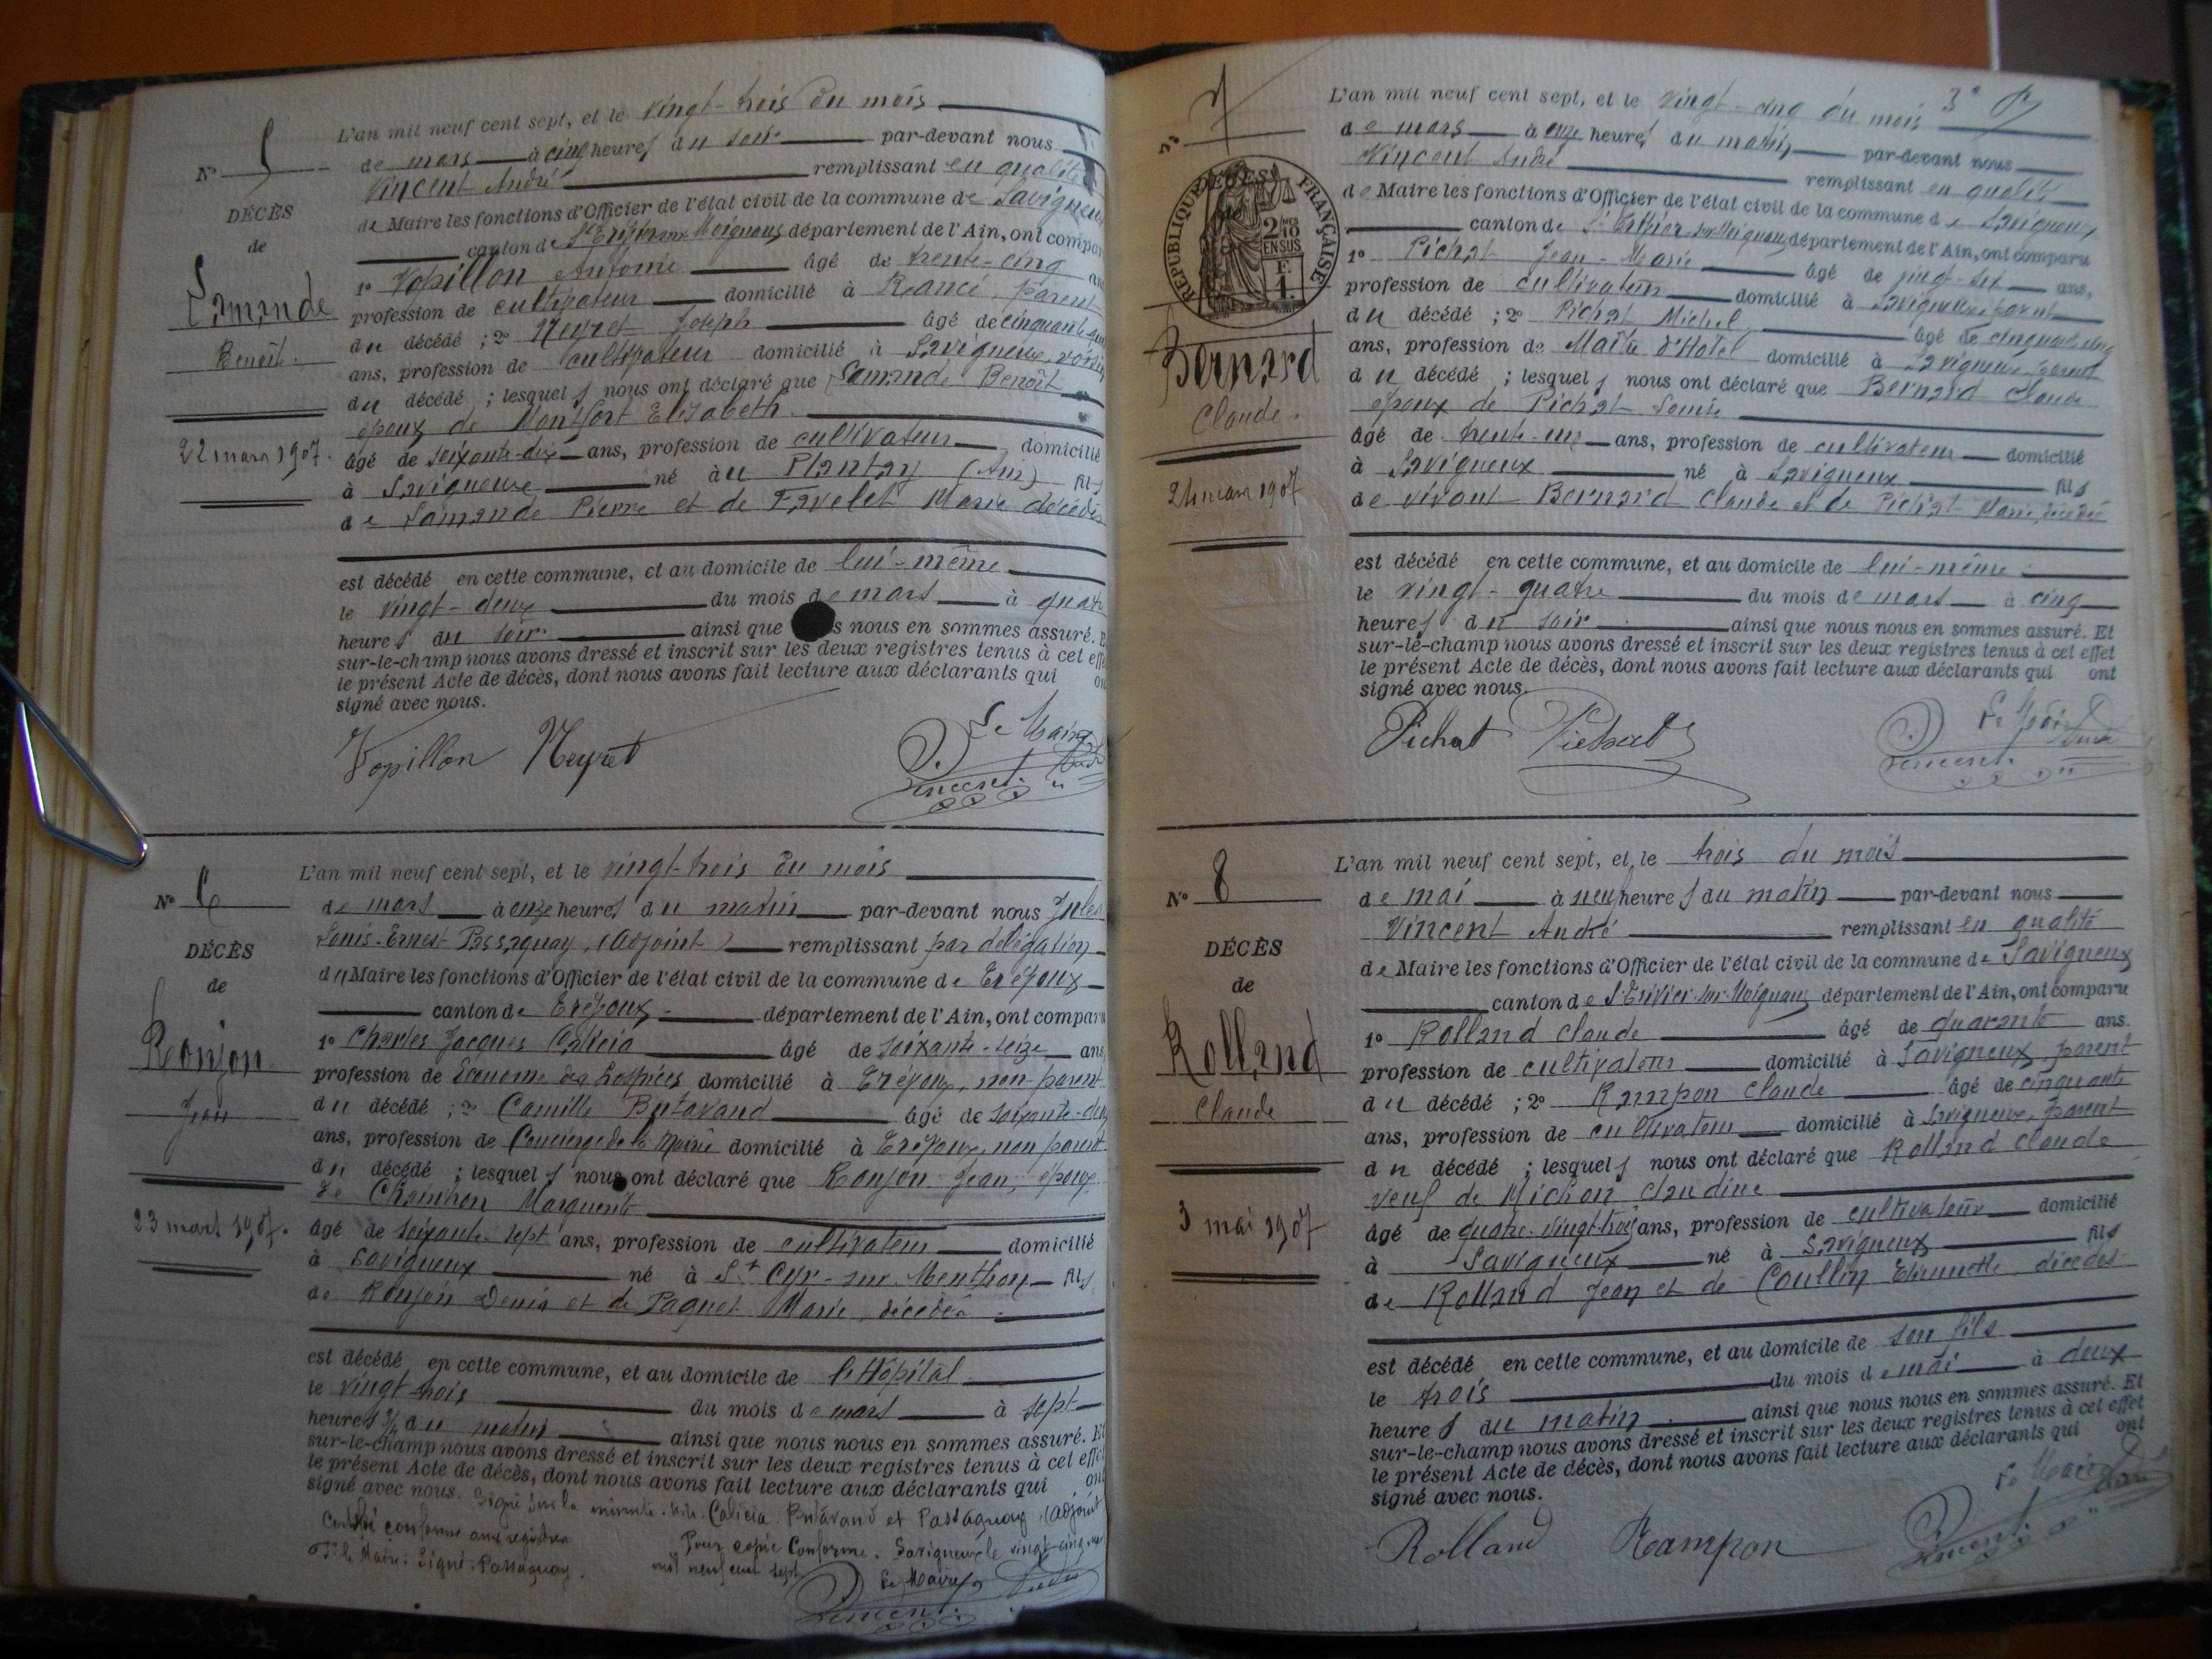 N° 5
DÉCÈS
de
Lamande
Benoît.
22 mars 1907.
L'an mil neuf cent sept, et le vingt-trois du mois
de mars à cinq heures du soir par-devant nous
Vincent André remplissant en qualité
de Maire les fonctions d'Officier de l'état civil de la commune de Savigneux
canton de St Trivier sur Moignans département de l'Ain, ont compar
1° Vopillon Antonie âgé de trente-cinq an
profession de cultivateur domicilié à Rancé, parent
du décédé ; 2° Neyret Joseph âgé de cinquante
ans, profession de cultivateur domicilié à Savigneux, voisin
du décédé ; lesquels nous ont déclaré que Lamande Benoît
époux de Montfort Elisabeth
âgé de soixante-dix ans, profession de cultivateur domicilié
à Savigneux né au Plantay (Ain) fils
de Lamande Pierre et de Favelet Marie décédés
est décédé en cette commune, et au domicile de lui-même
le vingt-deux du mois de mars à quatr
heures du soir ainsi que s nous en sommes assuré. E
sur-le-champ nous avons dressé et inscrit sur les deux registres tenus à cet effe
le présent Acte de décès, dont nous avons fait lecture aux déclarants qui on
signé avec nous.
Vopillon Neyret Le Maire
Vincent André
N° 6
DÉCÈS
de
Ronjon
Jean
23 mars 1907.
L'an mil neuf cent sept, et le vingt-trois du mois
de mars à onze heures du matin par-devant nous Jules
Louis-Ernest Passaquay, (Adjoint) remplissant par délégation
du Maire les fonctions d'Officier de l'état civil de la commune de Trévoux
canton de Trévoux département de l'Ain, ont comparu
1° Charles Jacques Calicia âgé de soixante-seize ans
profession de Econome des hospices domicilié à Trévoux, non-parent
du décédé ; 2° Camille Butavand âgé de soixante-deux
ans, profession de Concierge de la Mairie domicilié à Trévoux, non parent
du décédé ; lesquels nous ont déclaré que Ronjon Jean, époux
de Marguerite
âgé de soixante-sept ans, profession de cultivateur domicilié
à Savigneux né à St Cyr-sur-Menthon fils
de Ronjon Denis et de Paquet Marie, décédés
est décédé en cette commune, et au domicile de l'Hôpital
le vingt trois du mois de mars à sept
heures du matin ainsi que nous nous en sommes assuré. Et
sur-le-champ nous avons dressé et inscrit sur les deux registres tenus à cet effet
le présent Acte de décès, dont nous avons fait lecture aux déclarants qui ont
signé avec nous. Signé sur la minute. Calicia. Butavand et Passaquay (adjoint
conforme aux registres Pour copie Conforme. Savigneux le vingt-cinq mars
Pr le Maire : Signé : Passaquay. mil neuf cent sept.
Le Maire
Vincent André
3e
N° 7
RÉPUBLIQUE FRANÇAISE
2/10 EN SUS
Bernard
Claude.
24 mars 1907
L'an mil neuf cent sept, et le vingt-cinq du mois
de mars à onze heures du matin par-devant nous
Vincent André remplissant en qualité
de Maire les fonctions d'Officier de l'état civil de la commune de Savigneux
canton de St Trivier sur Moignans département de l'Ain, ont comparu
1° Pichat Jean-Marie âgé de vingt-six ans,
profession de cultivateur domicilié à Savigneux, parent
du décédé ; 2° Pichat Michel âgé de cinquante cinq
ans, profession de Maître d'Hôtel domicilié à Savigneux, parent
du décédé ; lesquels nous ont déclaré que Bernard Claude
époux de Pichat Louise
âgé de trente-un ans, profession de cultivateur domicilié
à Savigneux né à Savigneux fils
de vivant Bernard Claude et de Pichat Marie, décédée
est décédé en cette commune, et au domicile de lui-même
le vingt-quatre du mois de mars à cinq
heures du soir ainsi que nous nous en sommes assuré. Et
sur-le-champ nous avons dressé et inscrit sur les deux registres tenus à cet effet
le présent Acte de décès, dont nous avons fait lecture aux déclarants qui ont
signé avec nous.
Pichat Pichat Le Maire
Vincent André
N° 8
DÉCÈS
de
Rolland
Claude
3 mai 1907
L'an mil neuf cent sept, et le trois du mois
de mai à neuf heures du matin par-devant nous
Vincent André remplissant en qualité
de Maire les fonctions d'Officier de l'état civil de la commune de Savigneux
canton de St Trivier-sur-Moignans département de l'Ain, ont comparu
1° Rolland Claude âgé de quarante ans.
profession de cultivateur domicilié à Savigneux, parent
du décédé ; 2° Rampon Claude âgé de cinquante
ans, profession de cultivateur domicilié à Savigneux, parent
du décédé ; lesquels nous ont déclaré que Rolland Claude
veuf de Michon Claudine
âgé de quatre-vingt-trois ans, profession de cultivateur domicilié
à Savigneux né à Savigneux fils
de Rolland Jean et de Coullin Etiennette, décédés
est décédé en cette commune, et au domicile de son fils
le trois du mois de mai à deux
heures du matin ainsi que nous nous en sommes assuré. Et
sur-le-champ nous avons dressé et inscrit sur les deux registres tenus à cet effet
le présent Acte de décès, dont nous avons fait lecture aux déclarants qui ont
signé avec nous.
Le Maire
Rolland Rampon Vincent André